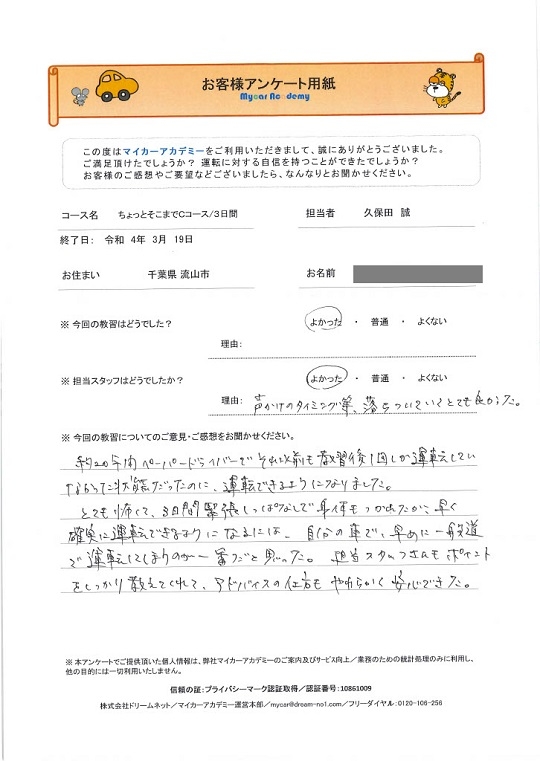 お客様アンケート用紙
Mycar Academy
この度はマイカーアカデミーをご利用いただきまして、誠にありがとうございました。
ご満足頂けたでしょうか？ 運転に対する自信を持つことができたでしょうか？
お客様のご感想やご要望などございましたら、なんなりとお聞かせください。
コース名 ちょっとそこまでCコース/3日間 担当者 久保田 誠
終了日： 令和 4年 3月 19日
お住まい 千葉県 流山市 お名前
※ 今回の教習はどうでした？ よかった ・ 普通 ・ よくない
理由：
※ 担当スタッフはどうでしたか？ よかった ・ 普通 ・ よくない
理由： 声かけのタイミング等、落ちついていてとても良かった。
※ 今回の教習についてのご意見・ご感想をお聞かせください。
約20年間ペーパードライバーでそれ以前も教習後1回しか運転してい
なかった状態だったのに、運転できるようになりました。
とても怖くて、3日間緊張しっぱなしで身体もつかれたが、早く
確実に運転できるようになるには、自分の車で、早めに一般道
で運転してしまうのが一番だと思った。 担当スタッフさんもポイント
をしっかり教えてくれて、アドバイスの仕方もやわらかく安心できた。
※ 本アンケートでご提供頂いた個人情報は、弊社マイカーアカデミーのご案内及びサービス向上／業務のための統計処理のみに利用し、
他の目的には一切利用いたしません。
信頼の証：プライバシーマーク認証取得／認証番号：10861009
株式会社ドリームネット／マイカーアカデミー運営本部／mycar@dream-no1.com／フリーダイヤル：0120-106-256